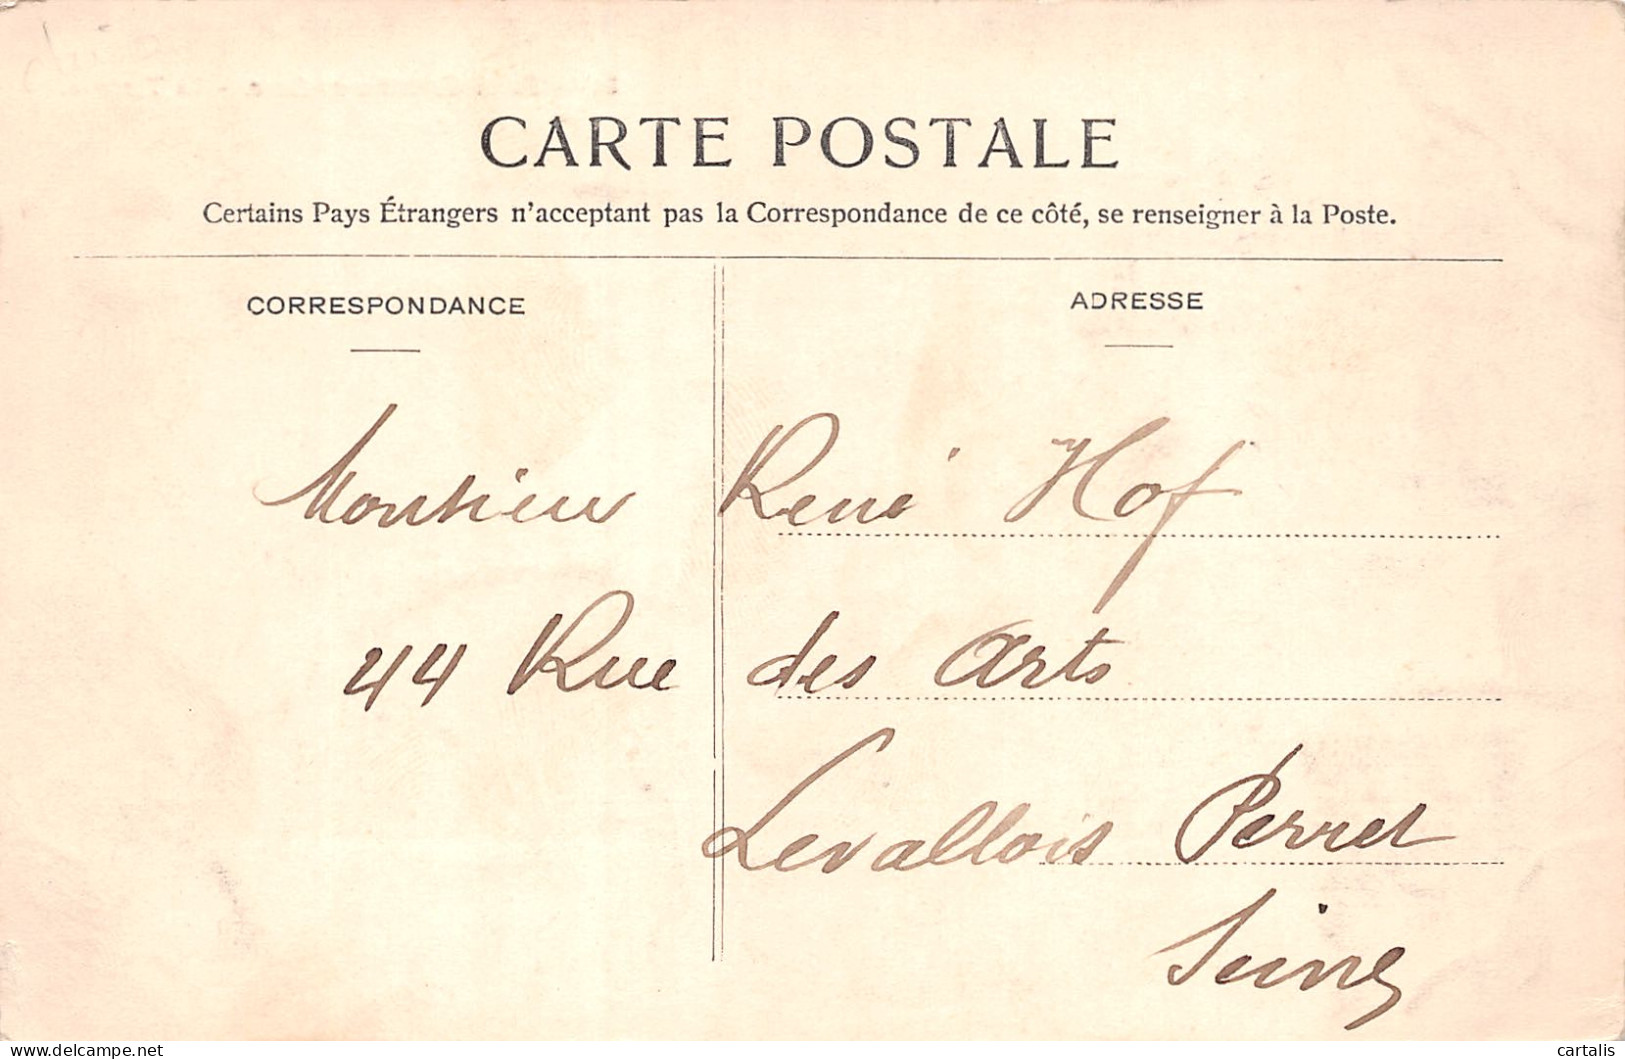 CARTE POSTALE
Certains Pays Étrangers n'acceptant pas la Correspondance de ce côté, se renseigner à la Poste.
CORRESPONDANCE
ADRESSE
Monsieur René Hof
44 Rue des Arts
Levallois Perret
Seine
www.delcampe.net
cartalis